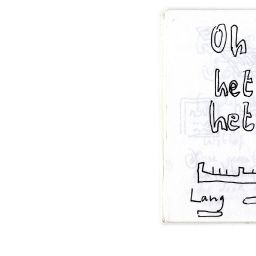 Oh
het
het
Lang